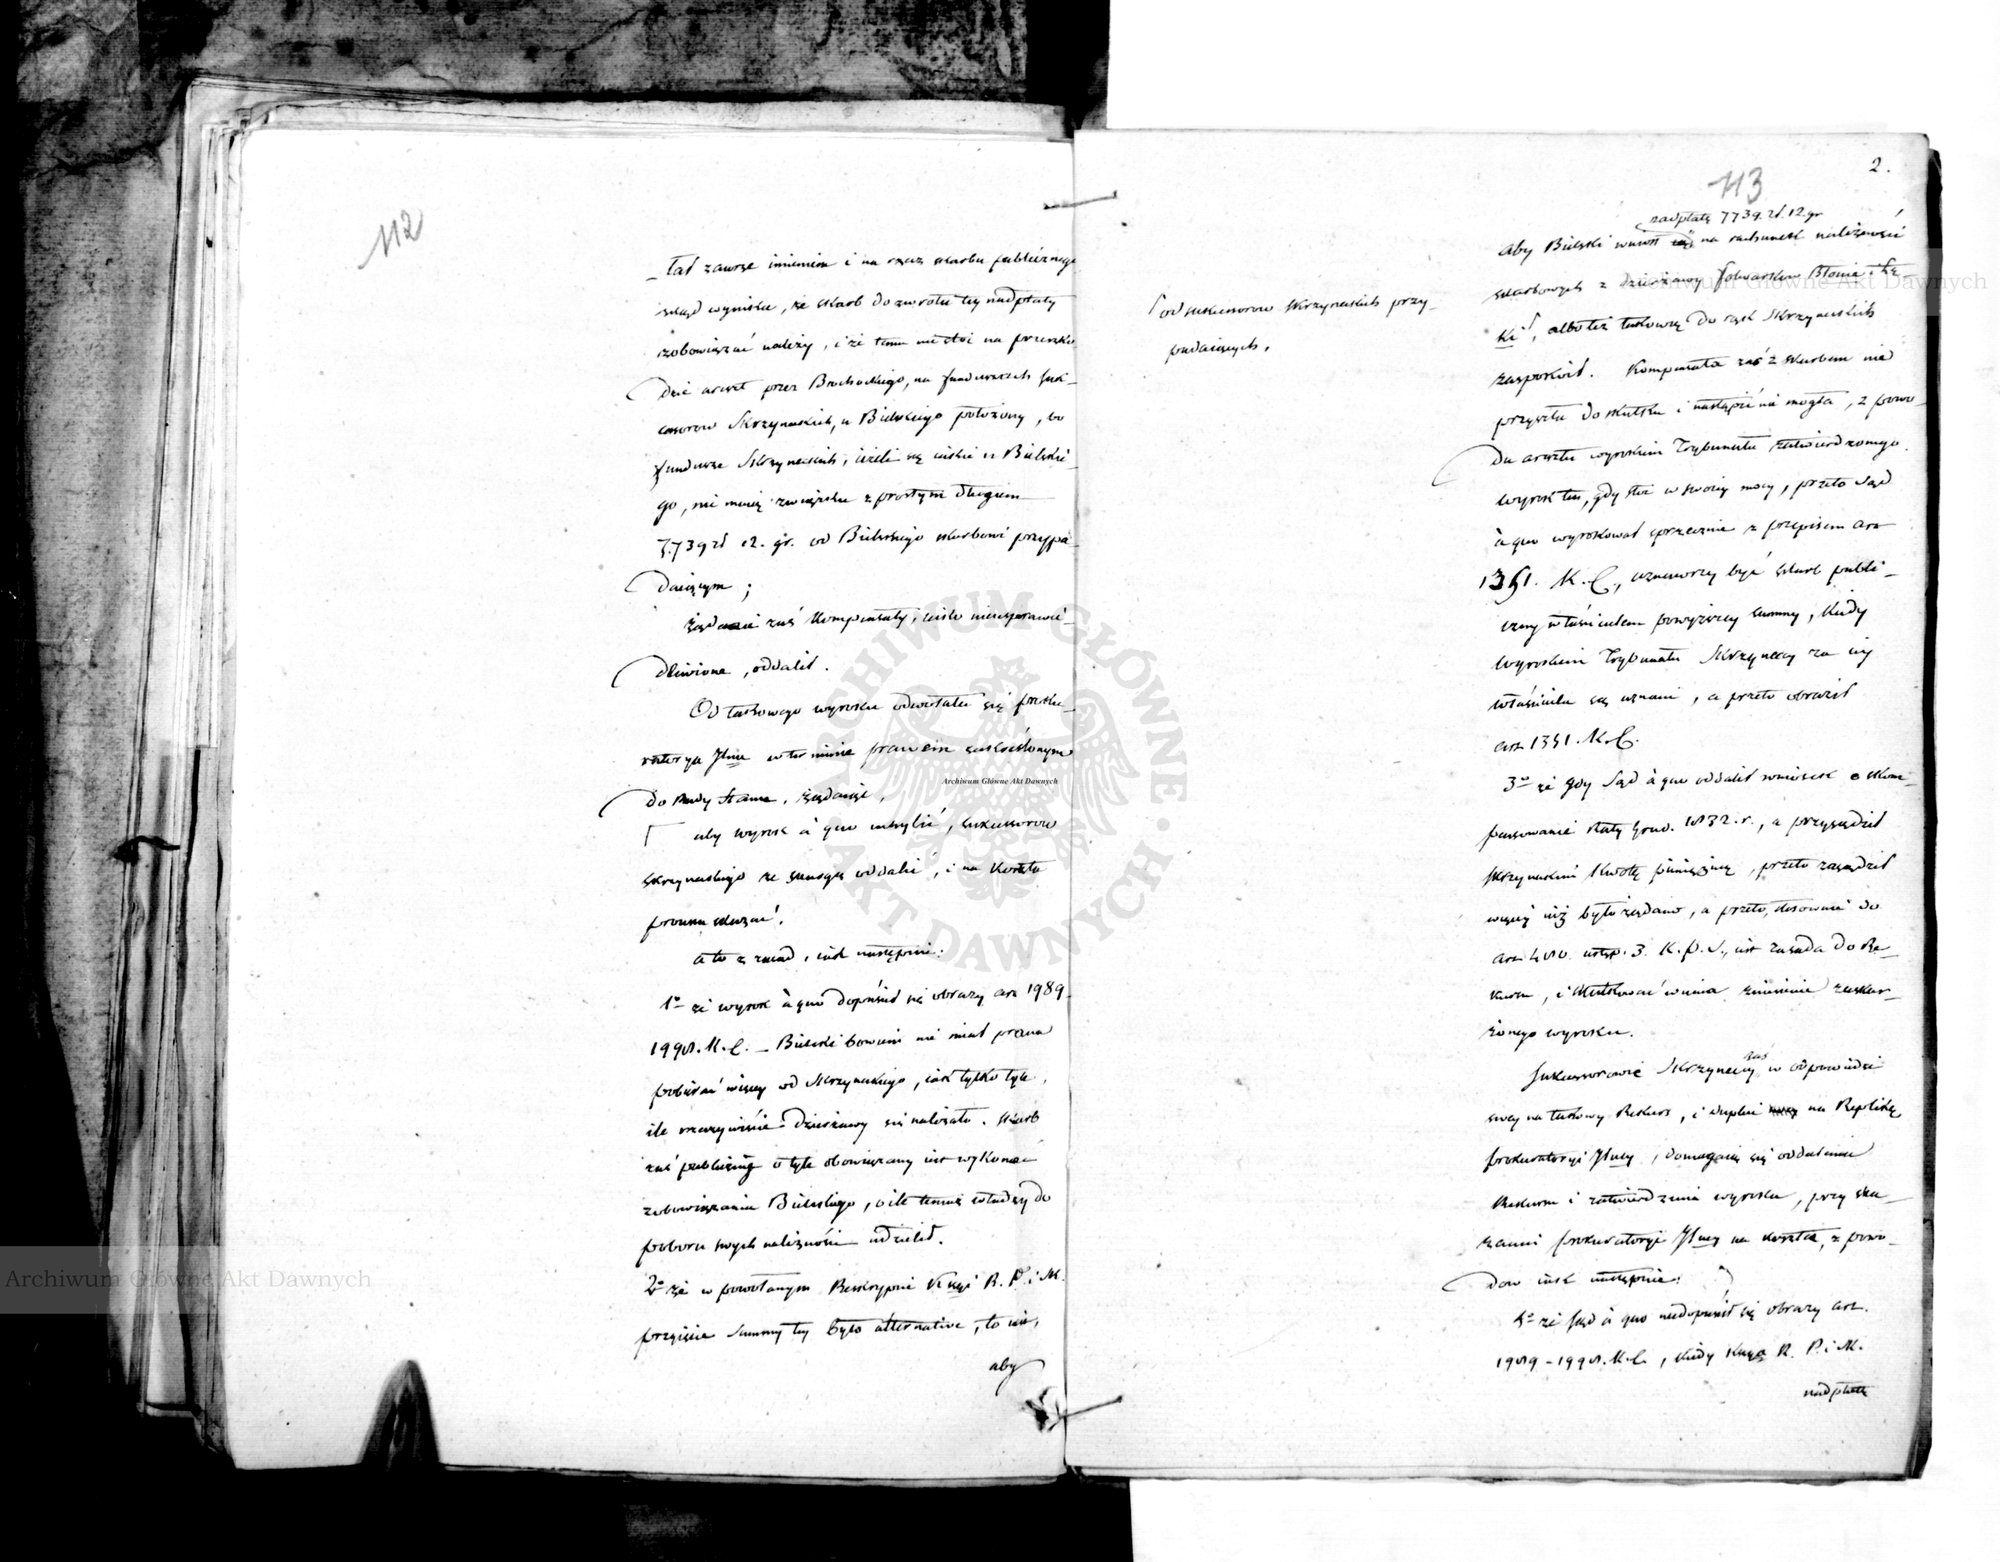 112
łał zawsze imieniem i na rzecz skarbu publicznego
skąd wynika, że skarb do zwrotu tey nadpłaty
zobowiązać należy, i że temu nie stoi na przeszko-
dzie areszt przez Brochockiego, na funduszach suk-
cessorow Skrzyneckich, u Bielskiego położony, bo
fundusze Skrzyneckich, ieżeli są iakie u Bielskie-
go, nie maią związku z prostym długiem
7.739 zł 12. gr. od Bielskiego skarbowi przypa-
daiącym;
żądanie zaś Kompensaty, iako nieusprawie-
dliwione, oddalił.
Od takowego wyroku odwołała się proku-
ratorya Jlna w terminie prawem zakreślonym
do Rady Stanu, żądaiąc,
aby wyrok à quo uchylić, sukcessorow
Skrzyneckiego ze skargą oddalić, i na koszta
prawne skazać.
a to z zasad, iak następnie:
1º że wyrok à quo dopuścił się obrazy art 1989
1998. K. C. – Bielski bowiem nie miał prawa
pobierać więcey od Skrzyneckiego, iak tylko tyle,
ile rzeczywiście dzierżawy się należało. Skarb
zaś publiczny o tyle obowiązany iest wykonać
zobowiązania Bielskiego, o ile temuż władzy do
poboru swych należności udzielił.
2º że w powołanym Reskrypcie K. R. P. i S.
przyięcie summy tey było alternative, to iest,
aby
2.
113
nadpłatę 7739. zł. 12. gr
aby Bielski wniosł na rachunek należności
skarbowych z dzierżawy folwarków Błonie i Łę-
ki, albo też takową do rąk Skrzyneckich
od sukcessorow Skrzyneckich przy-
padaiących,
zaspokoił. Kompensata zaś z skarbem nie
przyszła do skutku i nastąpić nie mogła, z powo-
du aresztu wyrokiem Trybunału zatwierdzonego.
Wyrok ten, gdy stoi w swoiey mocy, przeto Sąd
à quo wyrokował sprzecznie z przepisem art
1351. K. C., uznawszy być skarb publi-
czny właścicielem powyższey summy, kiedy
wyrokiem Trybunału Skrzyneccy za iey
właścicieli są uznani, a przeto obraził
art 1351. K. C.
3º że gdy Sąd à quo oddalił wniosek o kom-
pensowanie raty grud. 1832. r., a przysądził
Skrzyneckim kwotę pieniężną, przeto zasądził
więcey niż było żądano, a przeto, stosownie do
art 480. ustęp. 3. K. P. S., iest zasada do Re-
kursu, i skutkować winna zmienienie zaskar-
żonego wyroku.
Sukcessorowie Skrzyneccy zaś w odpowiedzi
swey na takowy Rekurs, i duplice na Replikę
prokuratoryi Jlney, domagaią się oddalenia
Rekursu i zatwierdzenia wyroku, przy ska-
zaniu prokuratoryi Jlney na koszta, z powo-
dow iak następnie:
1º że Sąd à quo nie dopuścił się obrazy art.
1989 – 1998. K. C., kiedy R. P. i S.
nadpłatę
Archiwum Główne Akt Dawnych
Archiwum Główne Akt Dawnych
Archiwum Główne Akt Dawnych
ARCHIWUM GŁÓWNE · AKT DAWNYCH ·